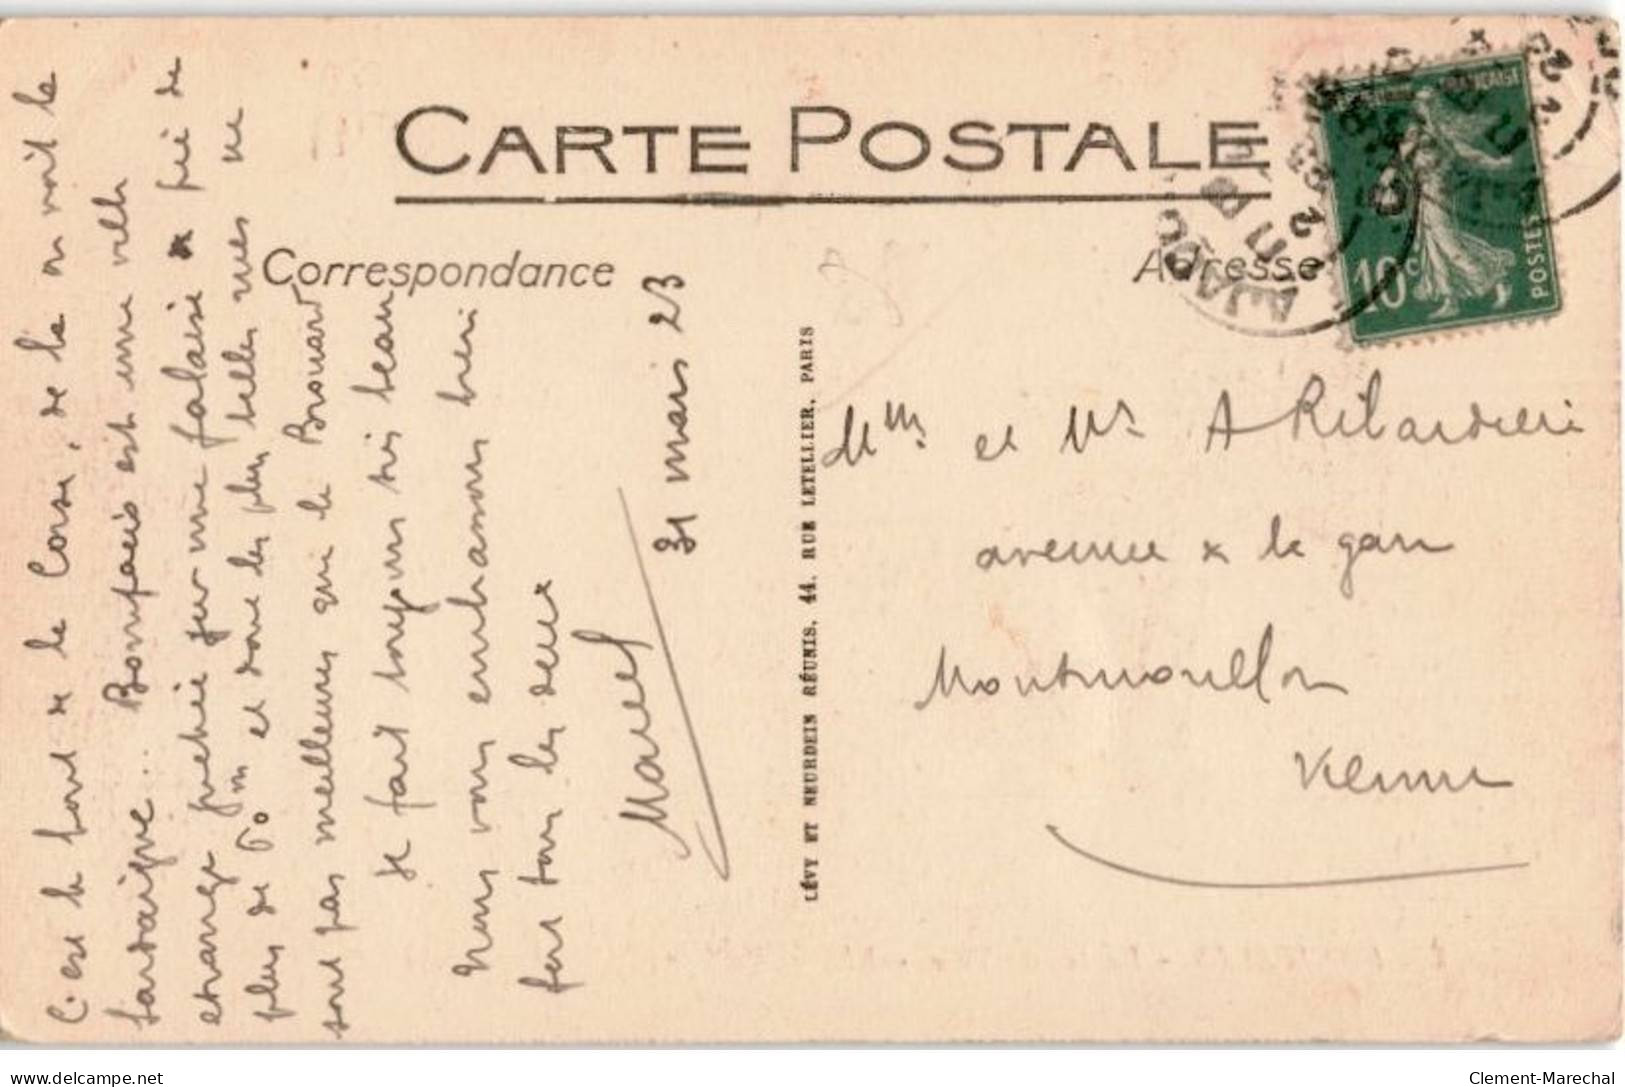 CARTE POSTALE
Correspondance
Adresse
C'est le bout de la Corse, de là on voit la
Sardaigne... Bonifacio est une ville
étrange perchée sur une falaise de près de
plus de 60 m et dont les plus belles vues ne
sont pas meilleures que le Brouard
Il fait toujours très beau
Nous vous embrassons bien
fort tous les deux
Marcel
31 mars 23
LÉVY ET NEURDEIN RÉUNIS, 44, RUE LETELLIER, PARIS
FRANÇAISE
POSTES
10c
AJACCIO
Mme et Mr A Ribardière
avenue de la gare
Montmorillon
Vienne
delcampe.net
Clement-Marechal